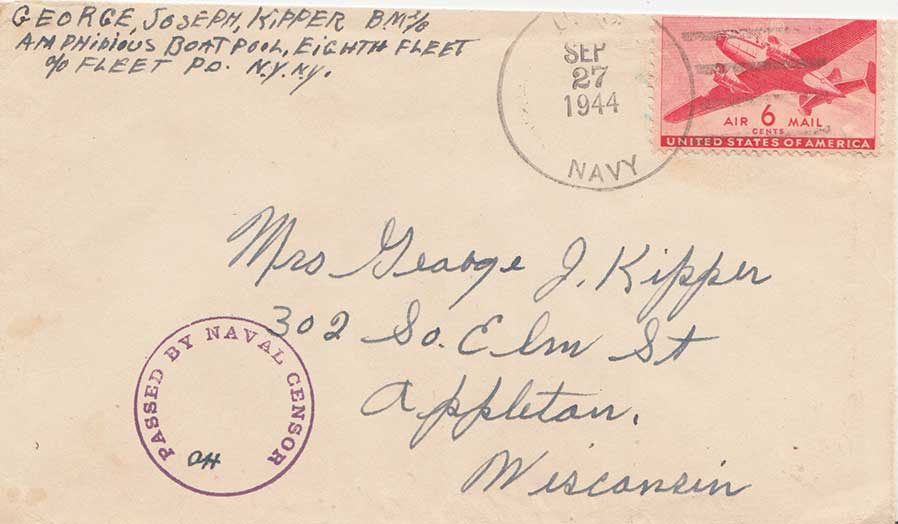 GEORGE, JOSEPH, KIPPER B.M. 2/c
AMPHIBIOUS BOAT POOL, EIGHTH FLEET
c/o FLEET P.O. N.Y. N.Y.
SEP
27
1944
NAVY
AIR 6 MAIL
CENTS
UNITED STATES OF AMERICA
Mrs George J. Kipper
302 So. Elm St
Appleton,
Wisconsin
PASSED BY NAVAL CENSOR